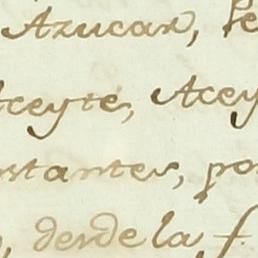 Azucar,
Aceyte, Acey
stantes, po
desde la f